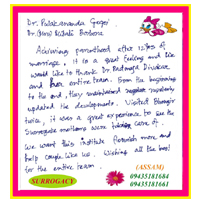 Dr. Pulakananda Gogoi
Dr. (Mrs) Kakali Borbora
Achieving parenthood after 12 yrs of
marriage, it is a great feeling and We
would like to thank Dr. Padmaja Divakar
and her entire team. From the beginning
to the end, they maintained regular
updated the developments. Visited
twice, it was a great experience to see the
Surrogate mothers were taken care of.
We want this institute flourish more and
help couples like us. Wishing all the best
for the entire team.
SURROGACY
(ASSAM)
09435181684
09435181661